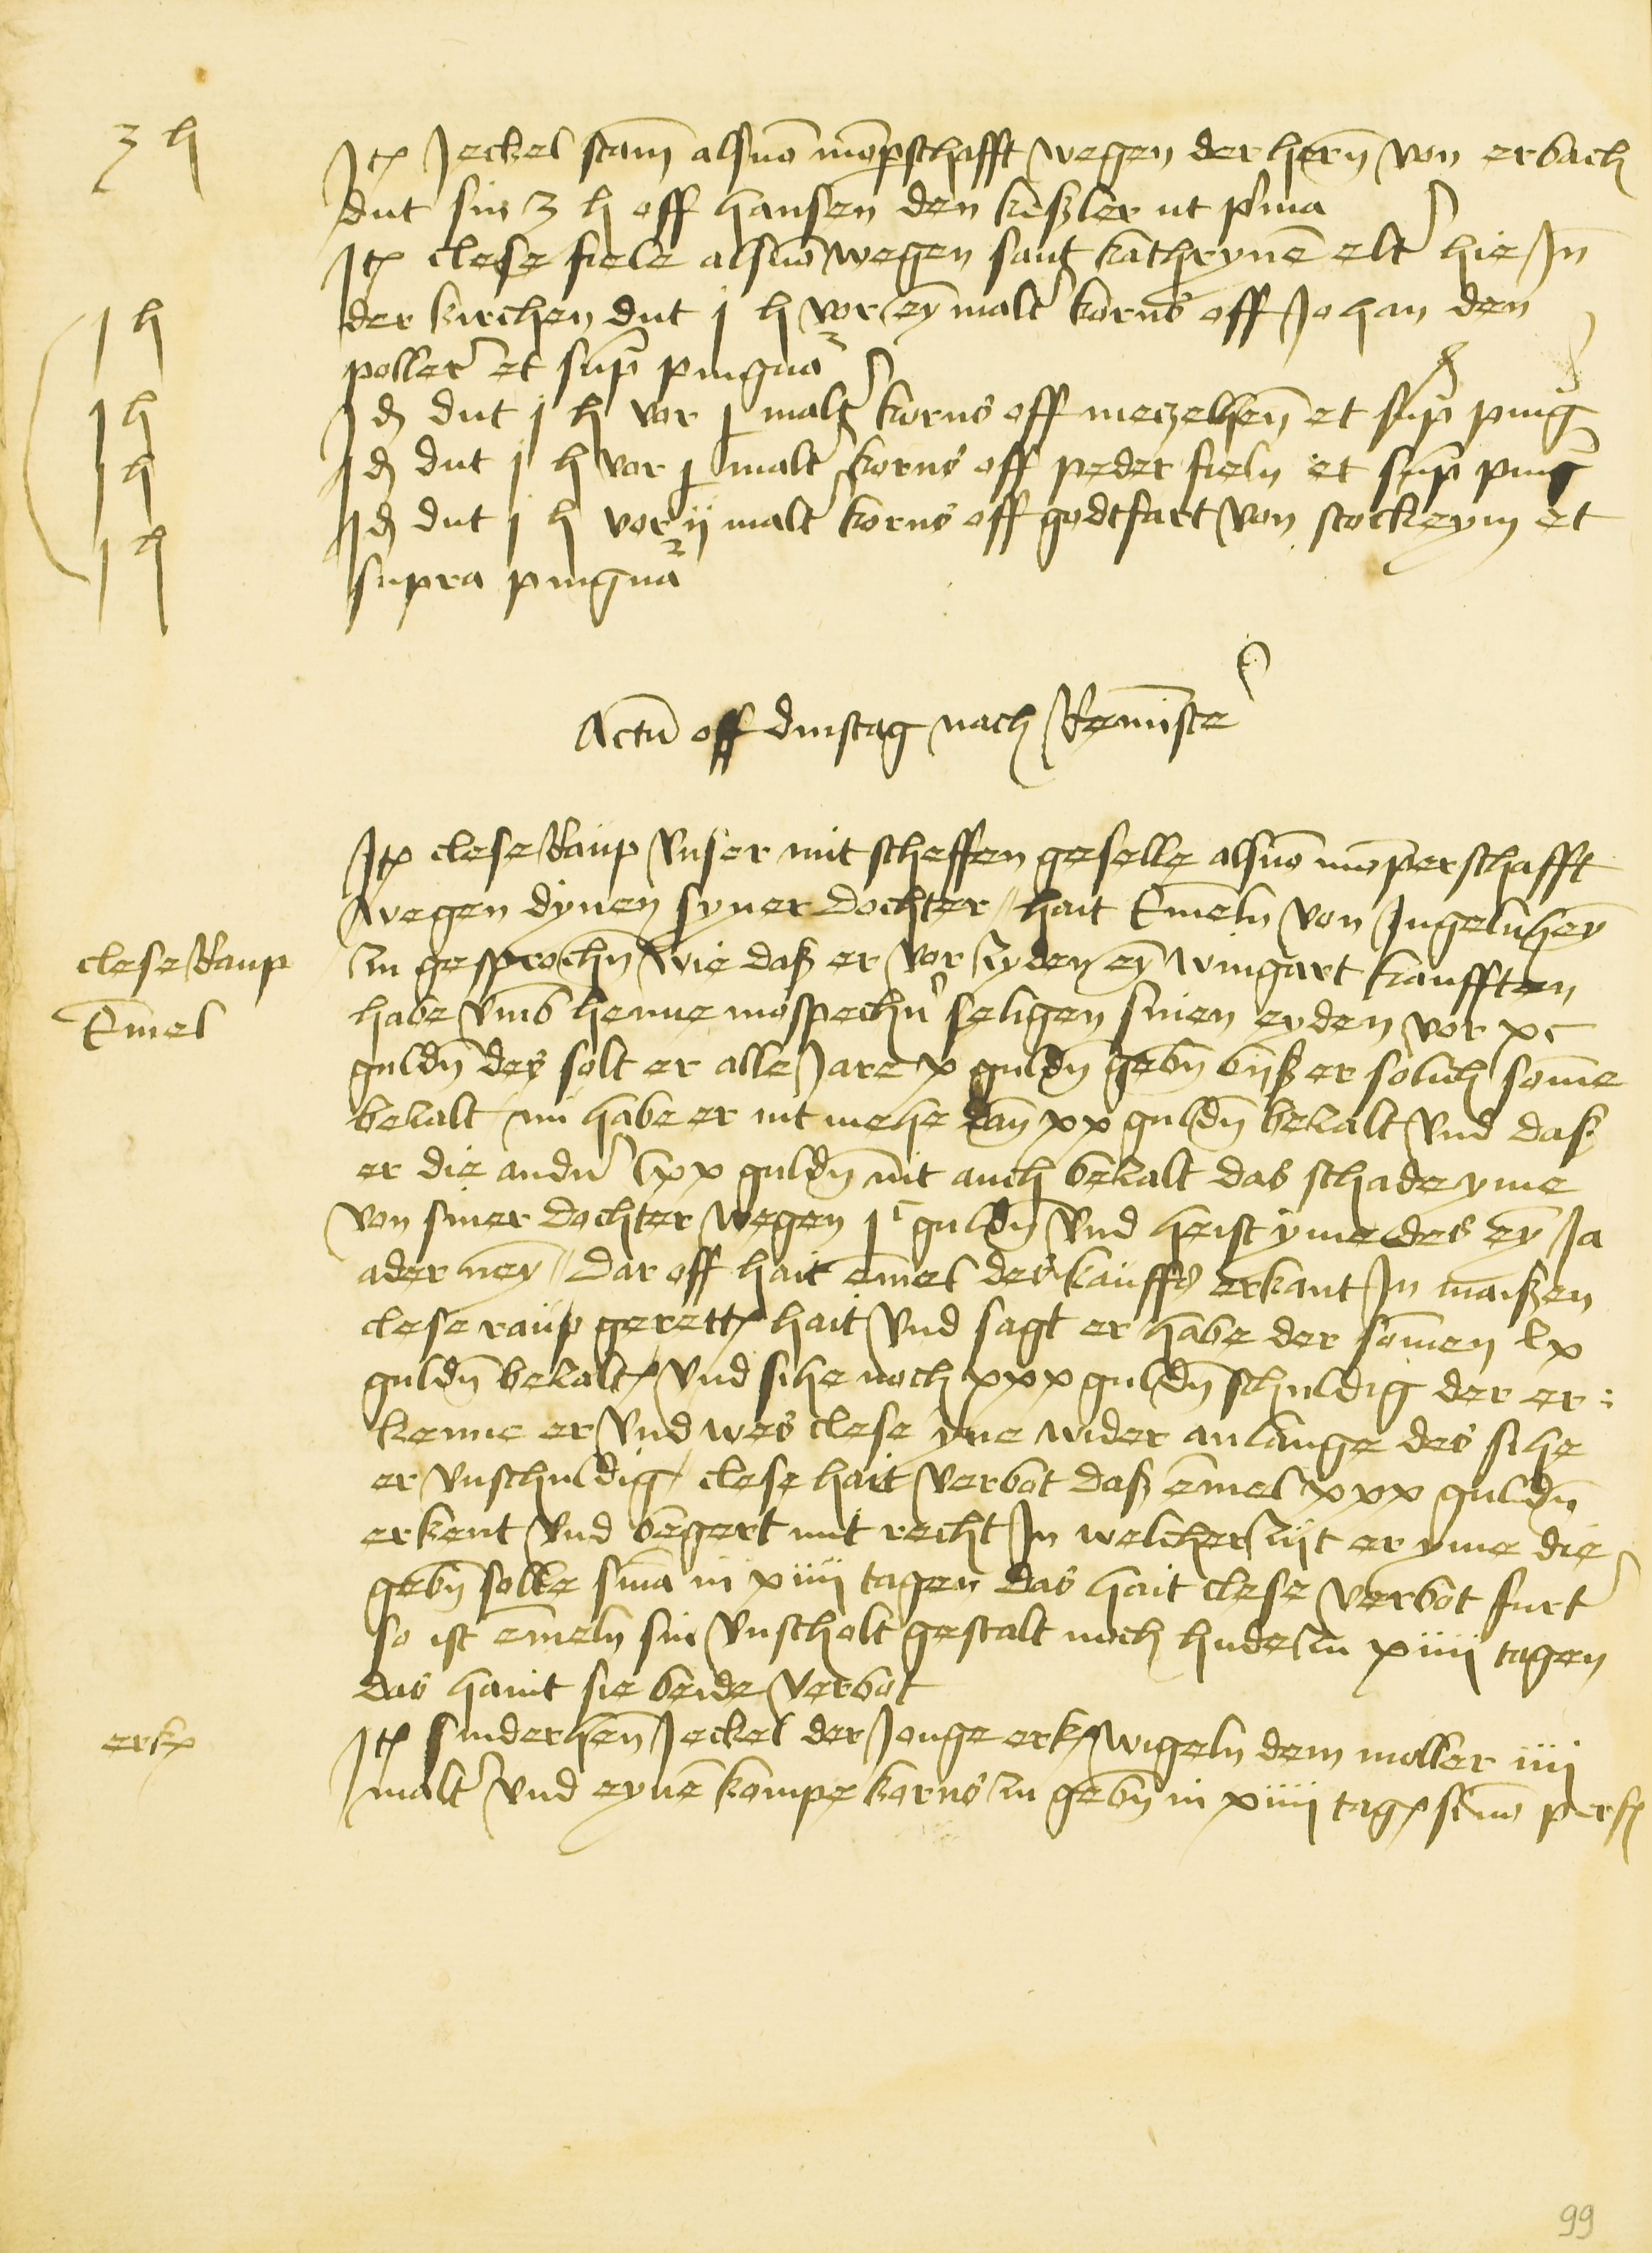 3 h
Jt(em) Jeckel stam̄ alsuō mōp(er)schafft wegen der hern̄ von erbach
dut sin 3 h off hansen den keßler ut p(ri)ma
Jt(em) clese fiele alsuō wegen sant kathrynē elt' hie Jn
1 h
der kirchen dut j h vor eȳ malt' korns off Johan den
poller et sup̄ pingnā
1 h
Jd(em) dut j h vor j malt' korns off metzelhen̄ et sup̄ pinḡ
1 h
Jd(em) dut j h vor j malt' korns off peder fieln et sup̄ pinḡ
1 h
Jd(em) dut j h vor ij malt' korns off godtfart von stockeym et
supra pingnā
Actū off dinstag nach Remīsce'
Jt(em) clese Raup vnser mit scheffen geselle alsuō mōperschafft
wegen dynen syner dochter / hait Em̄eln von Jngelnheȳ
clese Raup
zu gesprochn̄ wie daß er vor zyden eȳ wingart kaufften
Em̄el
habe vmb henne mospechn' seligen sinen eyden vor xc
guldn̄ des solt er alle Jare x guldn̄ gebn̄ bijß er solich som̄e
bezalt / nū habe er nit mehe dan̄ xx guldn̄ bezalt vnd daß
er die andn' lxx guldn̄ nit auch bezalt das schade yme
von siner dochter wegen jc guldn̄ vnd heist yme des eȳ Ja
ader neȳ / dar off hait em̄el des kauffs erkant Jn maißen
clese raup gerett hait vnd sagt er habe der som̄en lx
guldn̄ bezalt vnd sihe noch xxx guldn̄ schuldig der er:
kenne er vnd wes clese yne wider anlange des sihe
er vnschuldig / clese hait verbot daß em̄el xxx guldn̄
erkent vnd begert mit recht Jn welcher zijt er yme die
gebn̄ solle s(e)n(tenti)a in xiiij tagen das hait clese verbot furt'
so ist em̄eln sin vnscholt gestalt noch hude zu xiiij tagen
das hant sie beide verbot
erk(ennt)
Jt(em) sniderhen̄ Jeckel der Jonge erk(ennt) wigeln dem moller iiij
malt' vnd eynē kompe korns zu gebn̄ in xiiij tag(en) si nō p(er)f(ecerit)
99